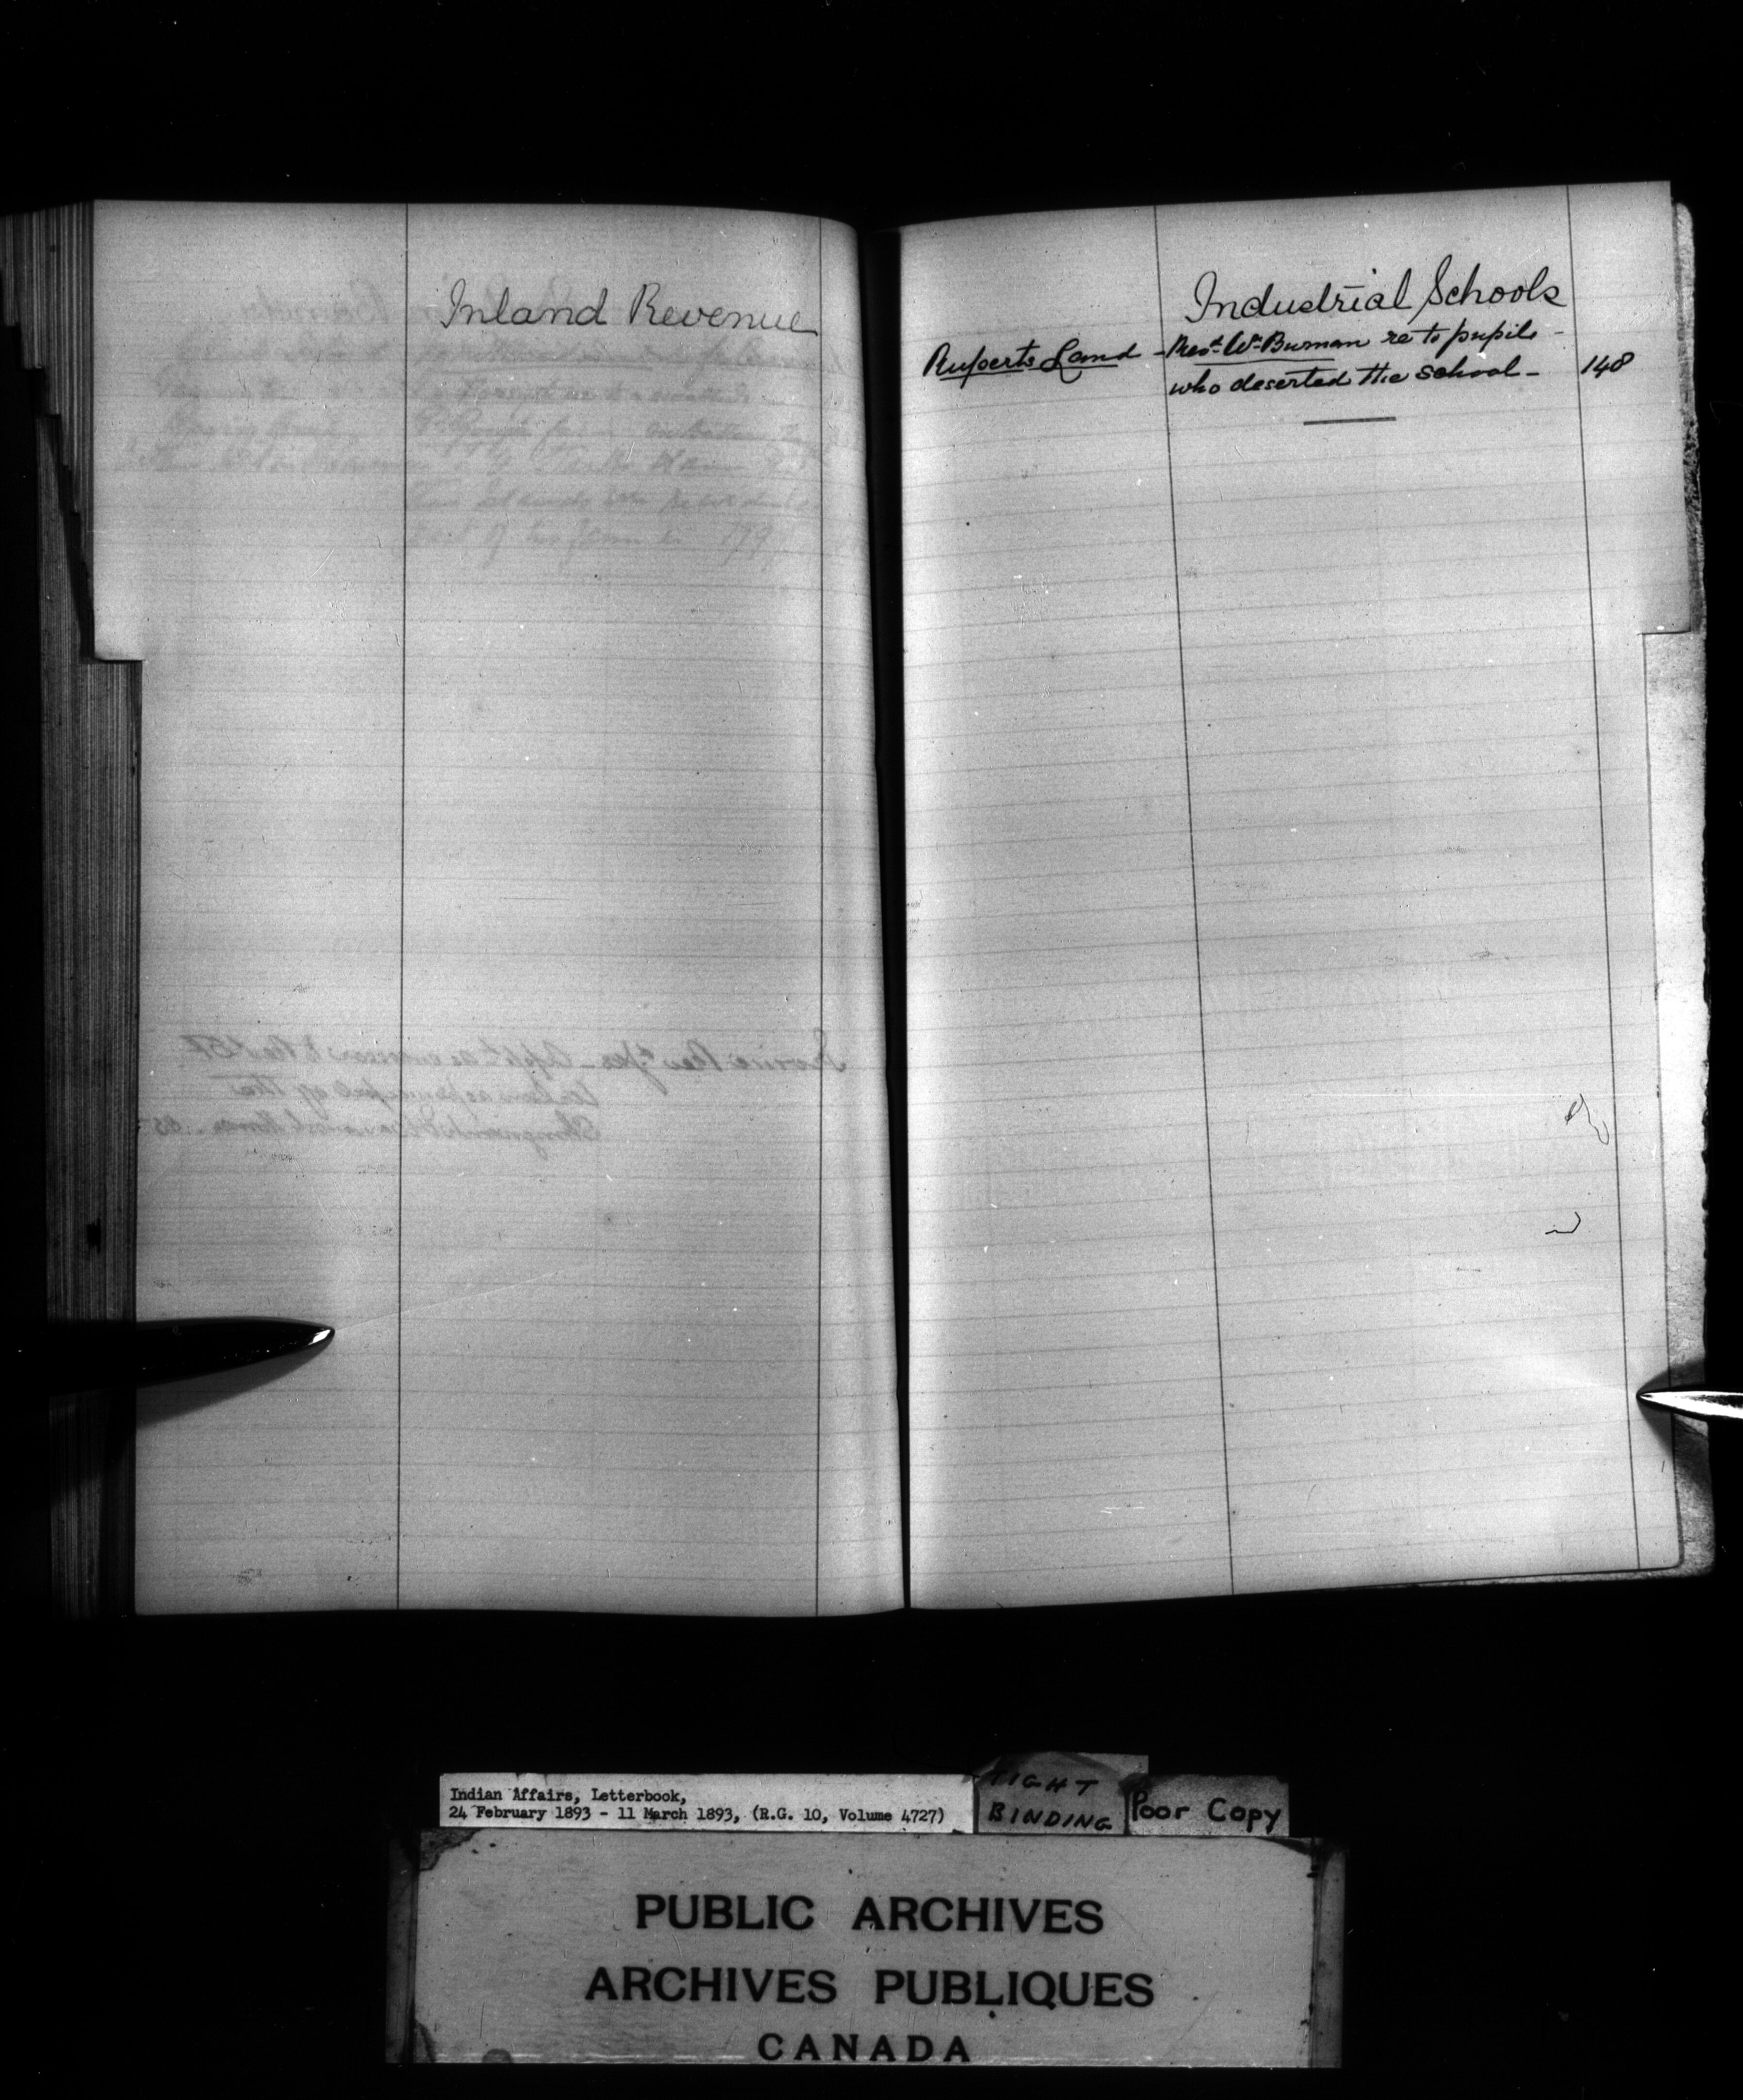 Inland Revenue
Industrial Schools
Ruperts Land - Revd. Wm. Burman re to pupils -
who deserted the school - 148
Indian Affairs, Letterbook,
24 February 1893 - 11 March 1893, (R.G. 10, Volume 4727)
TIGHT
BINDING
Poor Copy
PUBLIC ARCHIVES
ARCHIVES PUBLIQUES
CANADA